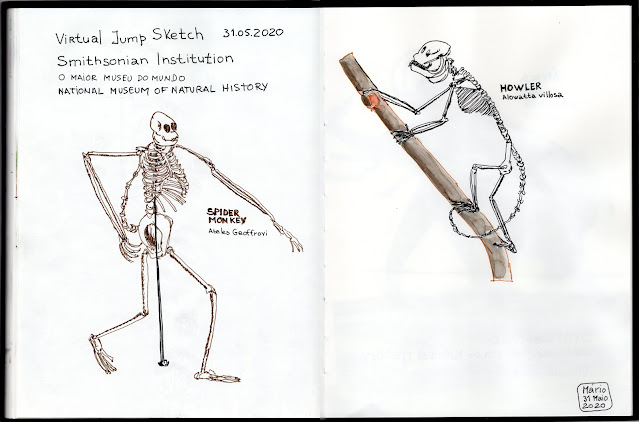 Virtual Jump Sketch 31.05.2020
Smithsonian Institution
O MAIOR MUSEU DO MUNDO
NATIONAL MUSEUM OF NATURAL HISTORY
SPIDER
MONKEY
Ateles Geoffrovi
HOWLER
Alouatta villosa
Mário
31 Maio
2020